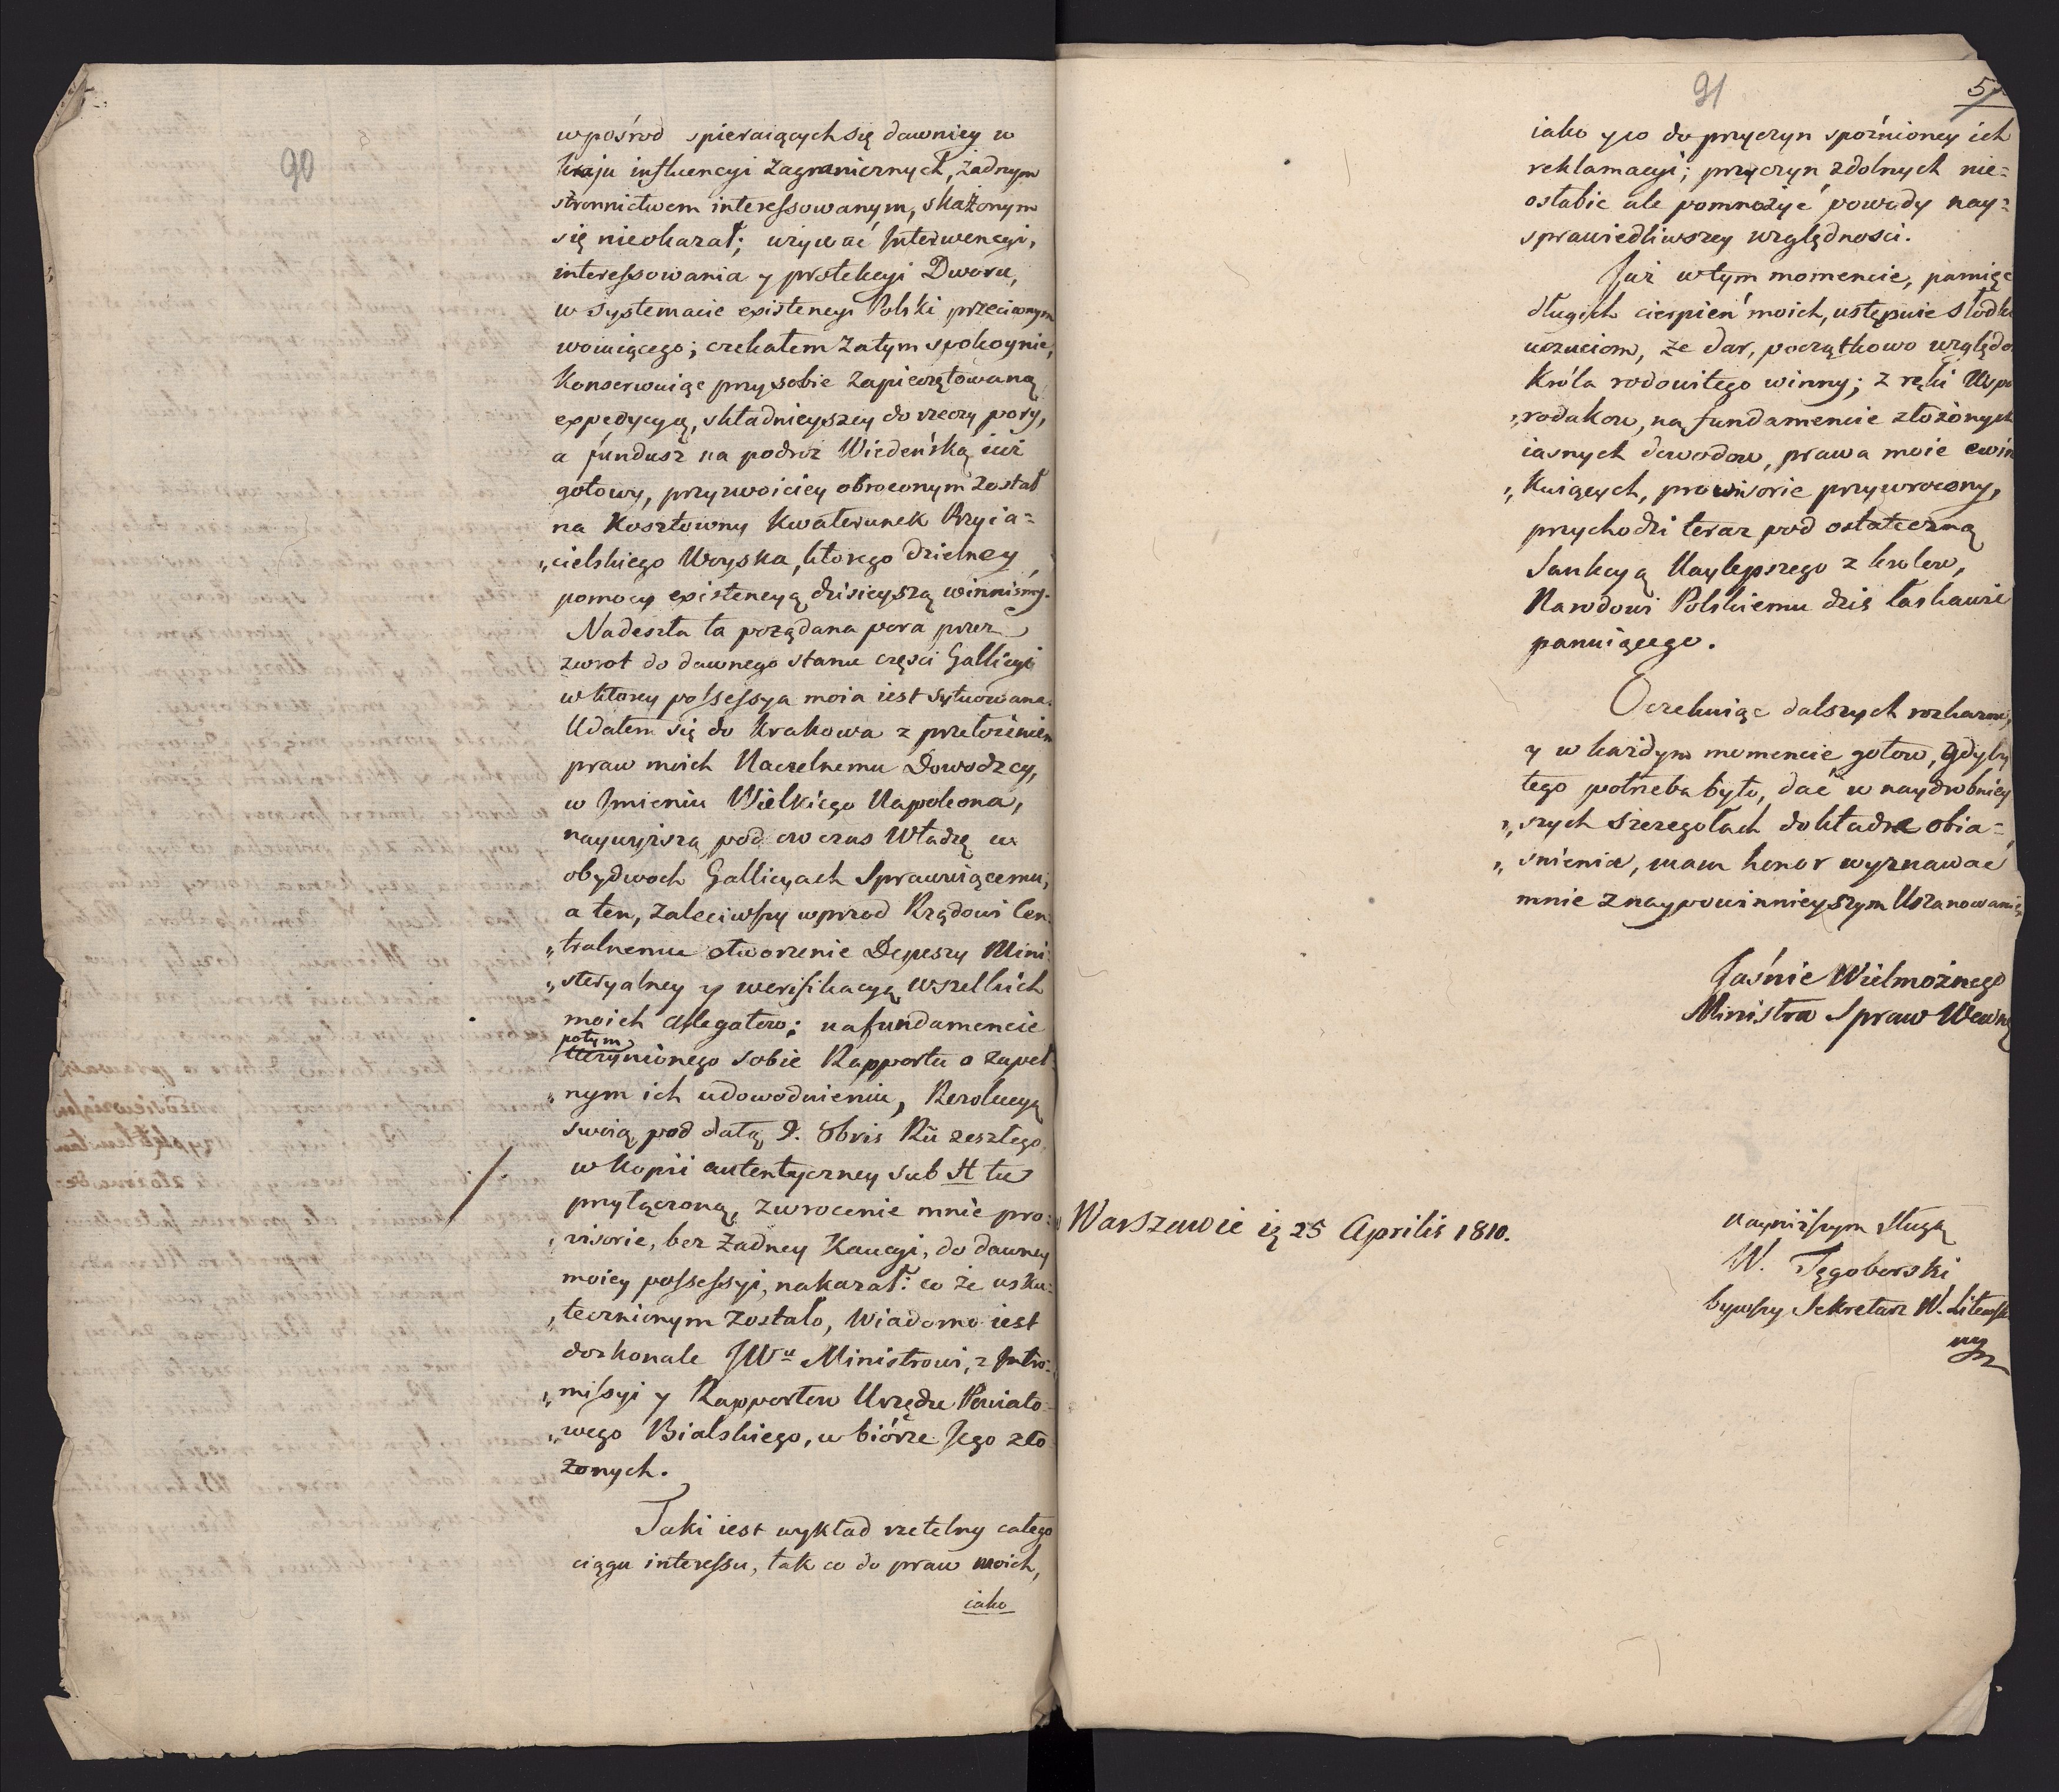 90
wpośrod spieraiących się dawniey w
kraju influencyi zagranicznych, żadnym
stronnictwem interessowanym, skażonym
się nieokazał; używać Interwencyi,
interessowania y protekcyi Dworu,
w systemacie existencyi Polski przeciwnym
woiuiącego; czekałem zatym spokoynie,
Konserwuiąc przy sobie zapieczętowaną
expedycyą, składnieyszey do rzeczy pory,
a fundusz na podroż Wiedeńską iuż
gotowy, przyzwoiciey obroconym został
na Kosztowny Kwaterunek Przyia=
„cielskiego Woyska, ktorego dzielney
pomocy existencyą dzisieyszą winniśmy.
Nadeszła ta pożądana pora przez
zwrot do dawnego stanu części Gallicyi
w ktorey possessya moia iest sytuowana.
Udałem się do Krakowa z przełożeniem
praw moich Naczelnemu Dowodzcy,
w Imieniu Wielkiego Napoleona,
naywyższą pod ow czas Władzę w
obydwoch Gallicyach Sprawuiącemu;
a ten, zaleciwszy wprzod Rządowi Cen:
„tralnemu otworzenie Depeszy Mini:
„steryalney y weryfikacyą wszelkich
moich allegatow; na fundamencie
potym
uczynionego sobie Rapportu o zupeł:
„nym ich udowodnieniu, Rezolucyą
swoią pod datą 9. 8bris Ru zeszłego
w Kopii autentyczney sub H tu
przyłączoną, zwrocenie mnie pro:
„wisorie, bez żadney Kaucyi, do dawney
moiey possessyi, nakazał: co że usku:
„tecznionym zostało, wiadomo iest
doskonale JWu Ministrowi, z Intro:
„missyi y Rapportow Urzędu Powiato=
„wego Bialskiego, w biórze Jego zło
żonych.
Taki iest wykład rzetelny całego
ciągu interessu, tak co do praw moich,
iako
91
5
iako y co do przyczyn spoźnioney ich
reklamacyi; przyczyn zdolnych nie=
osłabić ale pomnożyć powody nay=
sprawiedliwszey względności.
Już w tym momencie, pamięć
długich cierpień moich, ustępuie słodk
uczuciom, że dar, początkowo względo
Króla rodowitego winny; z ręki Wspo
„rodakow, na fundamencie złożonych
iasnych dowodow, prawa moie ewin
„kuiących, prowisorie przywrocony,
przychodzi teraz pod ostateczną
Sankcyą Naylepszego z krolow,
Narodowi Polskiemu dziś łaskawie
panuiącego.
Oczekuiąc dalszych rozkazow,
y w każdym momencie gotow, gdyby
tego potrzeba było, dać w naydrobniey
„szych szczegołach dokładne obia=
„śnienia, mam honor wyznawać
mnie z naypowinnieyszym Uszanowaniem
Jaśnie Wielmożnego
Ministra Spraw Wewnę
w Warszawie ią 25 Aprilis 1810.
nayniższym sługą
W. Tęgoborski
bywszy Sekretarz W. Litewsk